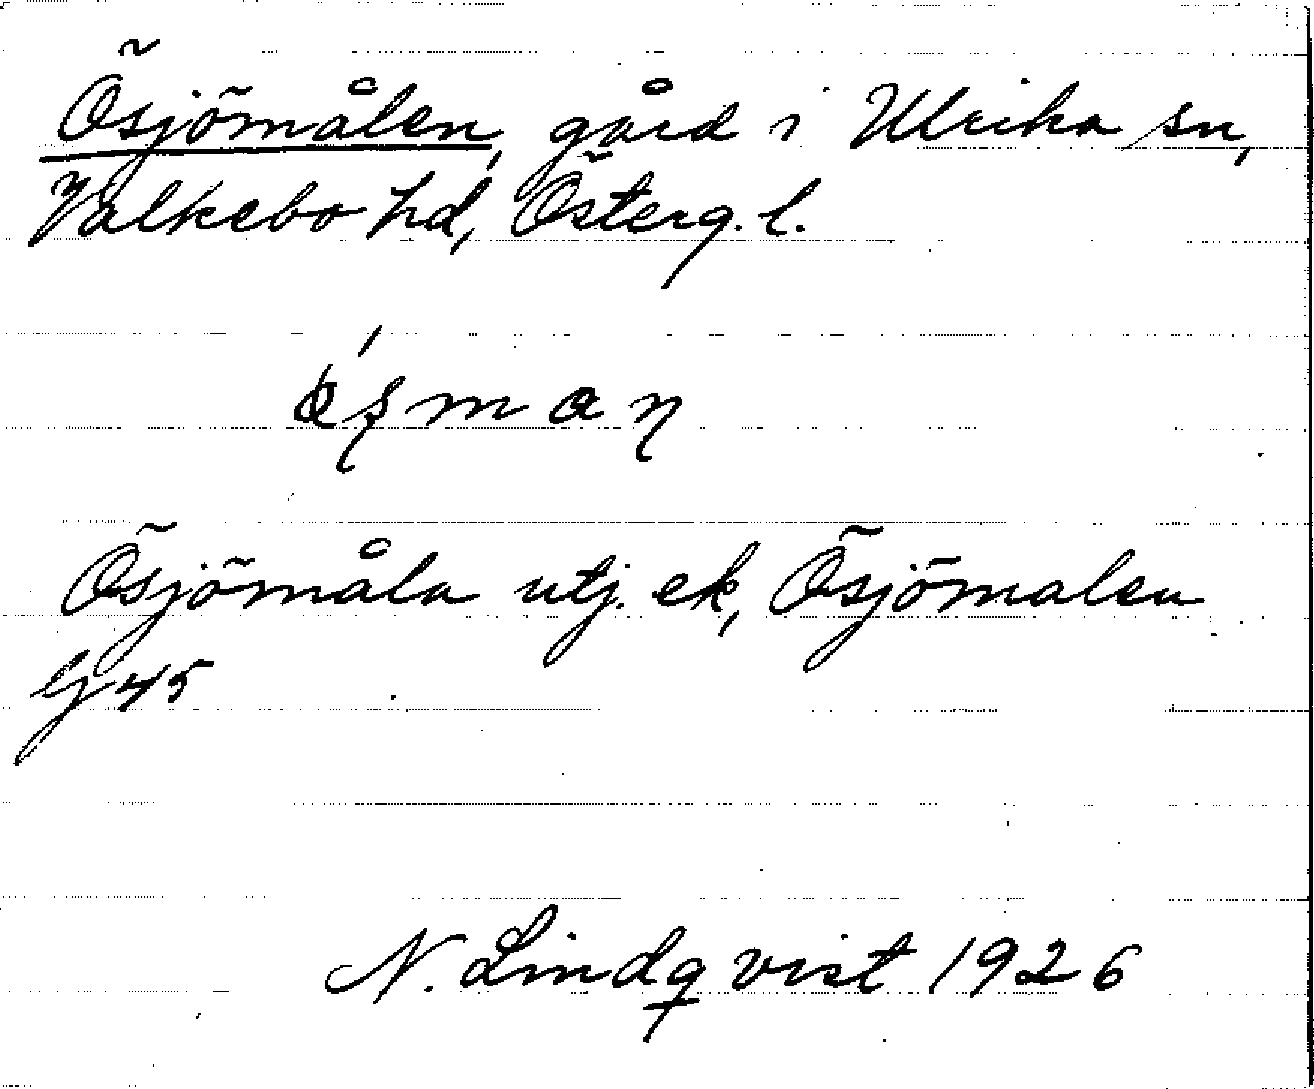 Ösjömålen, gård i Ulrika sn,
Valkebo hd, Österg. l.
Ösjömåla utj. ek, Ösjömalen
G 45
N. Lindqvist 1926